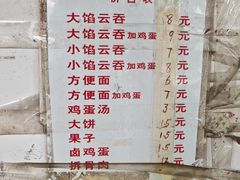 价目表
大馅云吞 8 元
大馅云吞加鸡蛋 9 元
小馅云吞 7 元
小馅云吞加鸡蛋 8 元
方便面 6 元
方便面加鸡蛋 7 元
鸡蛋汤 3 元
大饼 1.5 元
果子 1.5 元
卤鸡蛋 1.5 元
拆骨肉 12 元